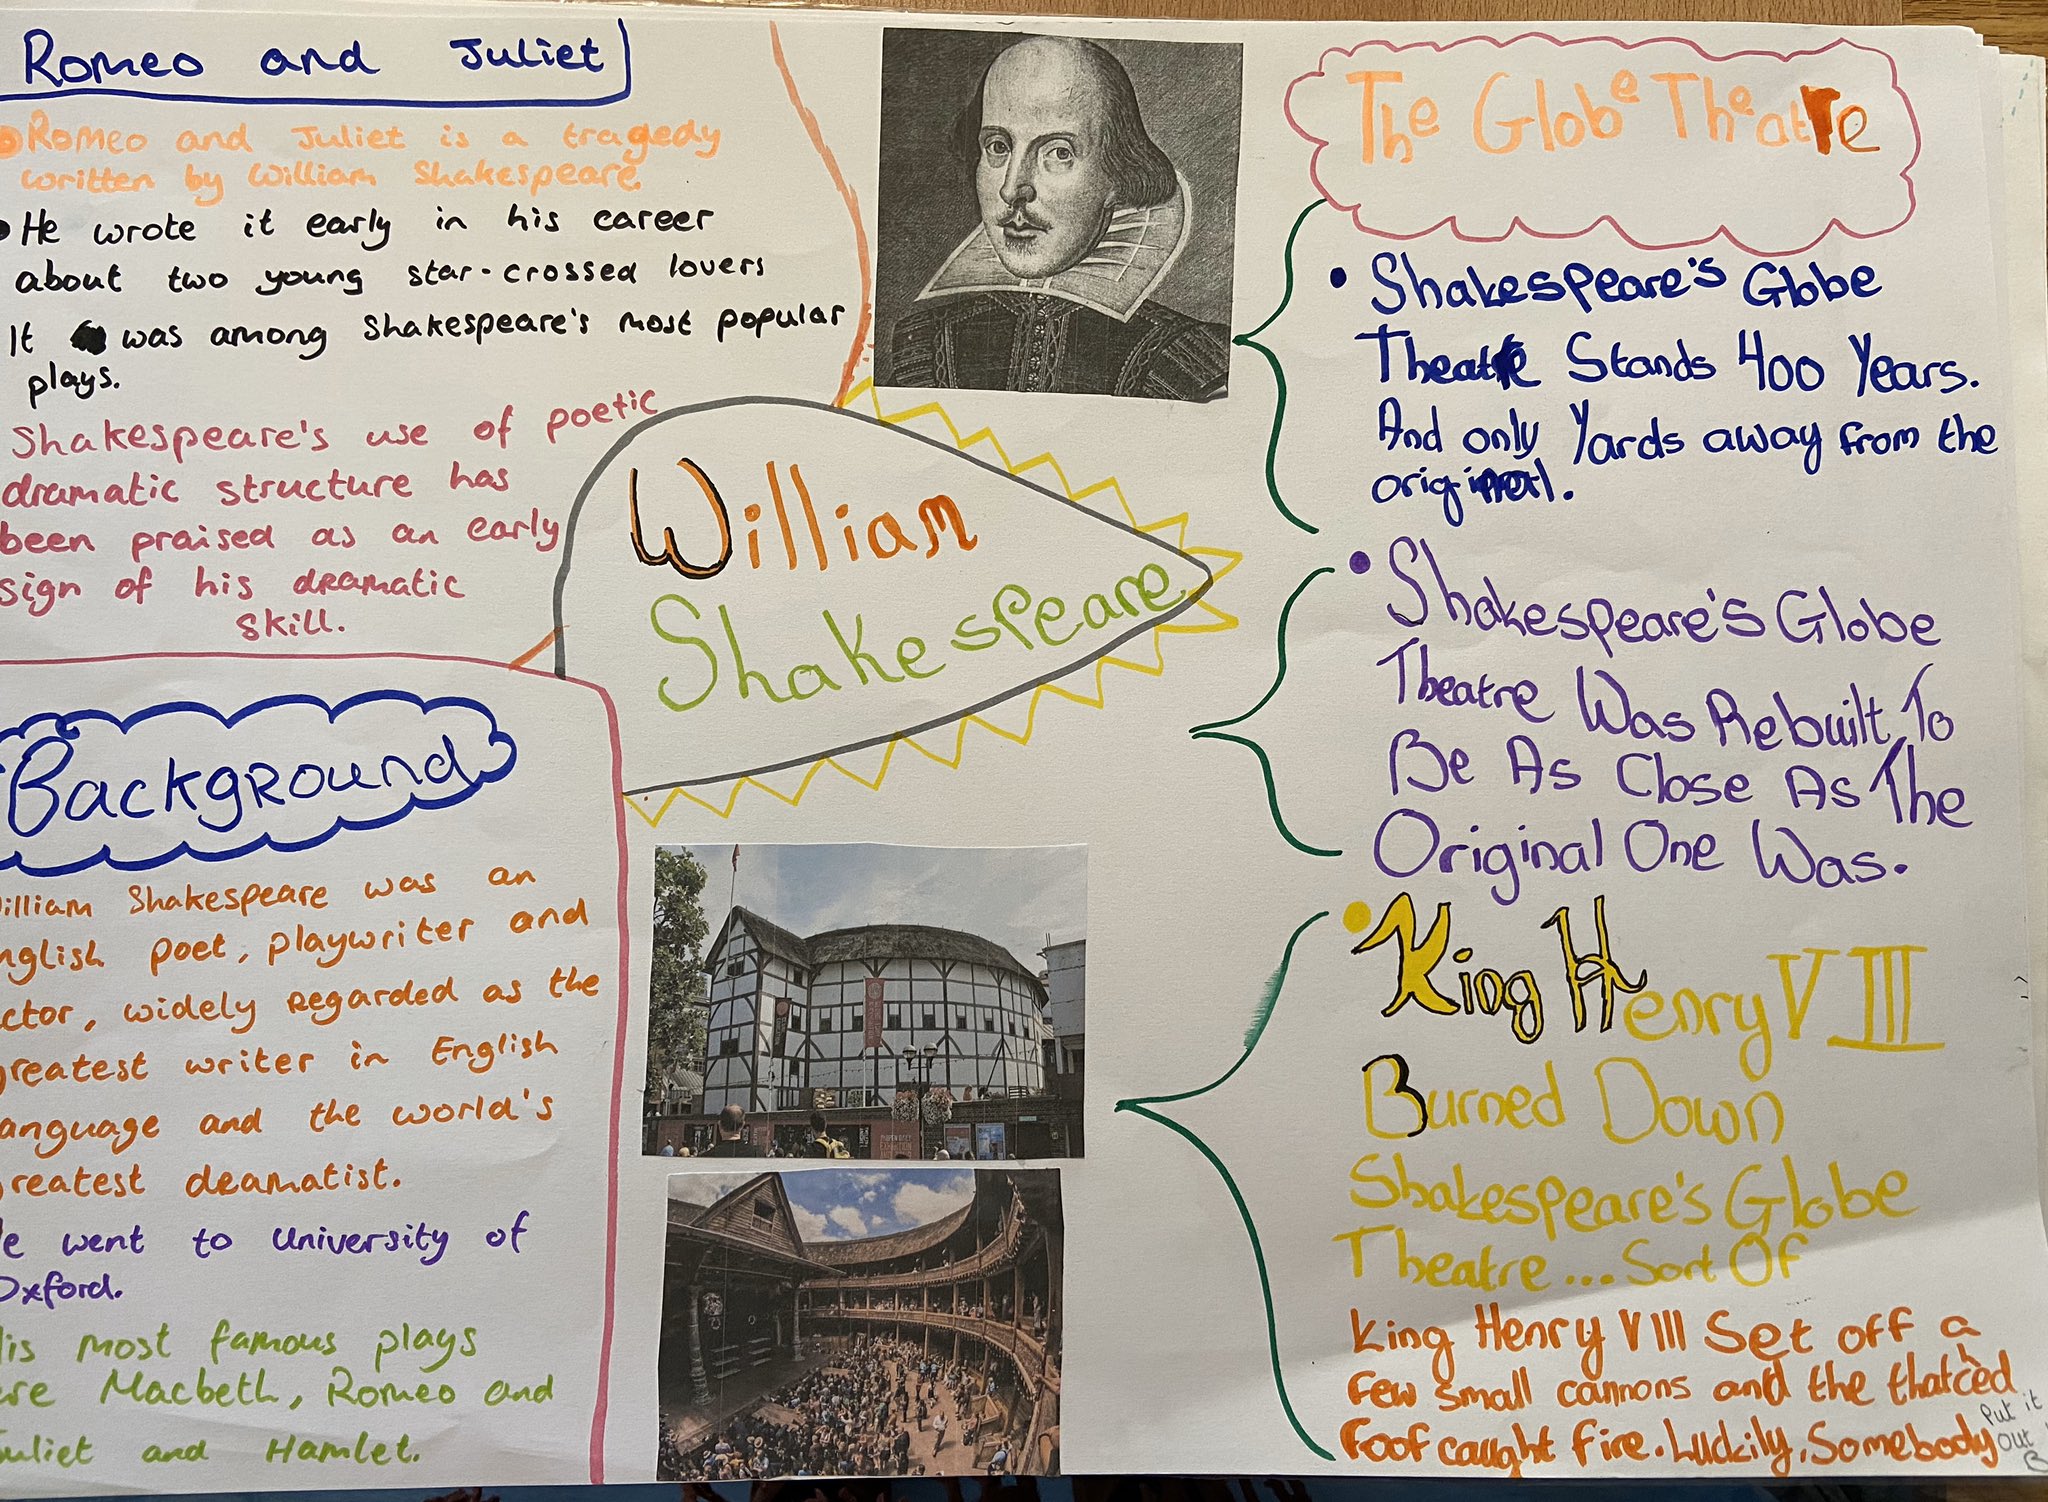 Romeo and Juliet
Romeo and Juliet is a tragedy
written by William Shakespeare.
He wrote it early in his career
about two young star-crossed lovers
It was among Shakespeare's most popular
plays.
Shakespeare's use of poetic
dramatic structure has
been praised as an early
sign of his dramatic
skill.
Background
illiam Shakespeare was an
nglish poet, playwriter and
ctor, widely regarded as the
greatest writer in English
anguage and the world's
greatest dramatist.
e went to University of
Oxford.
is most famous plays
ere Macbeth, Romeo and
Juliet and Hamlet.
William
Shakespeare
The Globe Theatre
Shakespeare's Globe
Theatre Stands 400 Years.
And only Yards away from the
original.
Shakespeare's Globe
Theatre Was Rebuilt To
Be As Close As The
Original One Was.
King Henry VIII
Burned Down
Shakespeare's Globe
Theatre... Sort Of
King Henry VIII Set off a
few small cannons and the thatched
roof caught fire. Luckily, Somebody
Put it
out